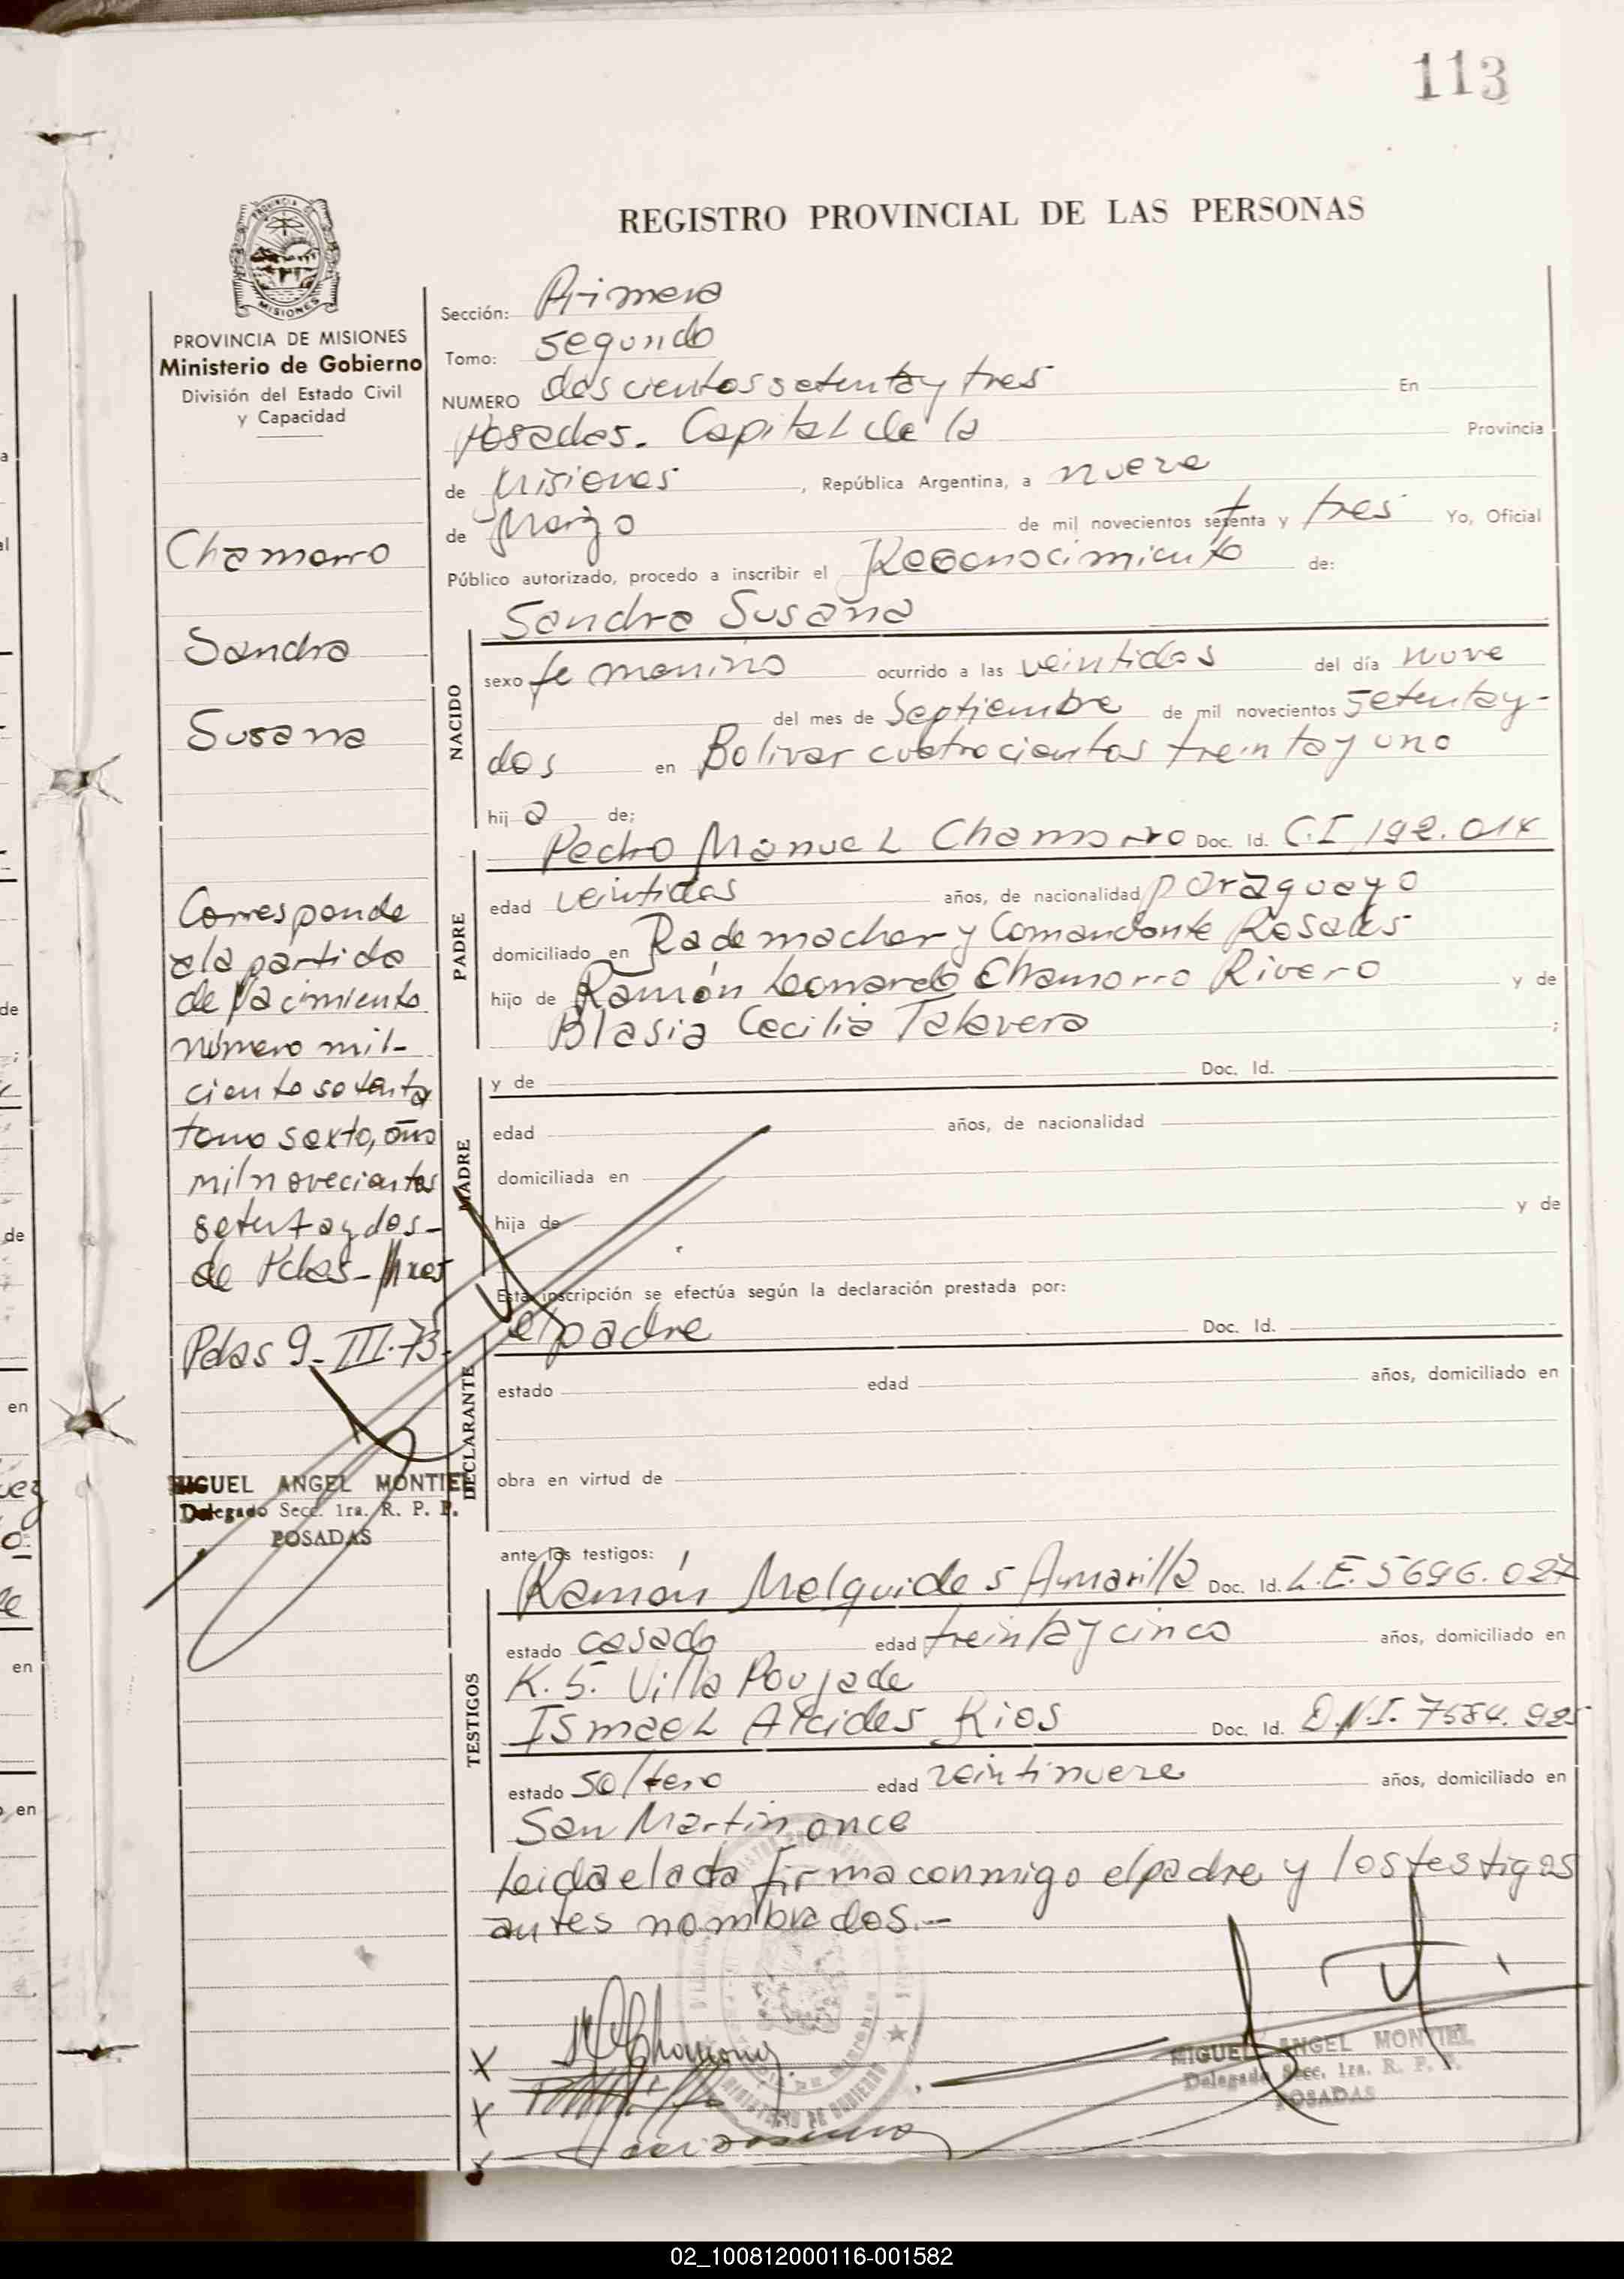 113
REGISTRO PROVINCIAL DE LAS PERSONAS
PROVINCIA DE MISIONES
Ministerio de Gobierno
División del Estado Civil
y Capacidad
Chamorro
Sandra
Susana
Corresponde
a la partida
de Nacimiento
número mil-
ciento setenta
tomo sexto, año
mil novecientos
setenta y dos-
de Pdas-
Pdas 9-III-73.
MIGUEL ANGEL MONTIEL
Delegado Secc. 1ra. R. P. P.
POSADAS
Sección: Primera
Tomo: segundo
NUMERO doscientos setenta y tres En
Posadas. Capital de la Provincia
de Misiones, República Argentina, a nueve
de Marzo de mil novecientos setenta y tres Yo, Oficial
Público autorizado, procedo a inscribir el Reconocimiento de:
Sandra Susana
NACIDO
sexo femenino ocurrido a las veintidos del día nueve
del mes de Septiembre de mil novecientos setenta y-
dos en Bolivar cuatrocientos treinta y uno
hij a de:
PADRE
Pedro Manuel Chamorro Doc. Id. C.I. 192.014
edad veintidos años, de nacionalidad paraguayo
domiciliado en Rademacher y Comandante Rosales
hijo de Ramón Leonardo Chamorro Rivero y de
Blasia Cecilia Talavera ;
MADRE
y de Doc. Id.
edad años, de nacionalidad
domiciliada en
hija de y de
Esta inscripción se efectúa según la declaración prestada por:
DECLARANTE
el padre Doc. Id.
estado edad años, domiciliado en
obra en virtud de
ante los testigos:
TESTIGOS
Ramón Melquides Amarilla Doc. Id. L.E. 5696.027
estado casado edad treinta y cinco años, domiciliado en
K. 5. Villa Poujade
Ismael Alcides Rios Doc. Id. D.N.I. 7684.925
estado soltero edad veintinueve años, domiciliado en
San Martin once
Leida el acta firma conmigo el padre y los testigos
antes nombrados.-
X
X
X
MINISTERIO DE GOBIERNO
MIGUEL ANGEL MONTIEL
Delegado Secc. 1ra. R. P. P.
POSADAS
02_100812000116-001582